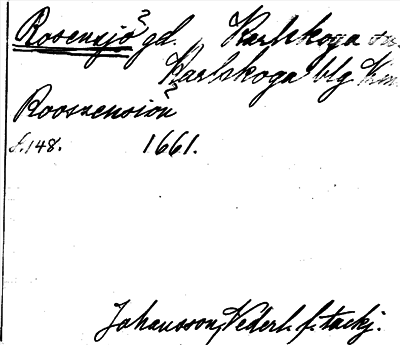 Rosensjö? gd. Karlskoga sn.
Karlskoga blg Km.
Roosnension?
f. 148. 1661.
Johansson, Nederl. f. tackj.